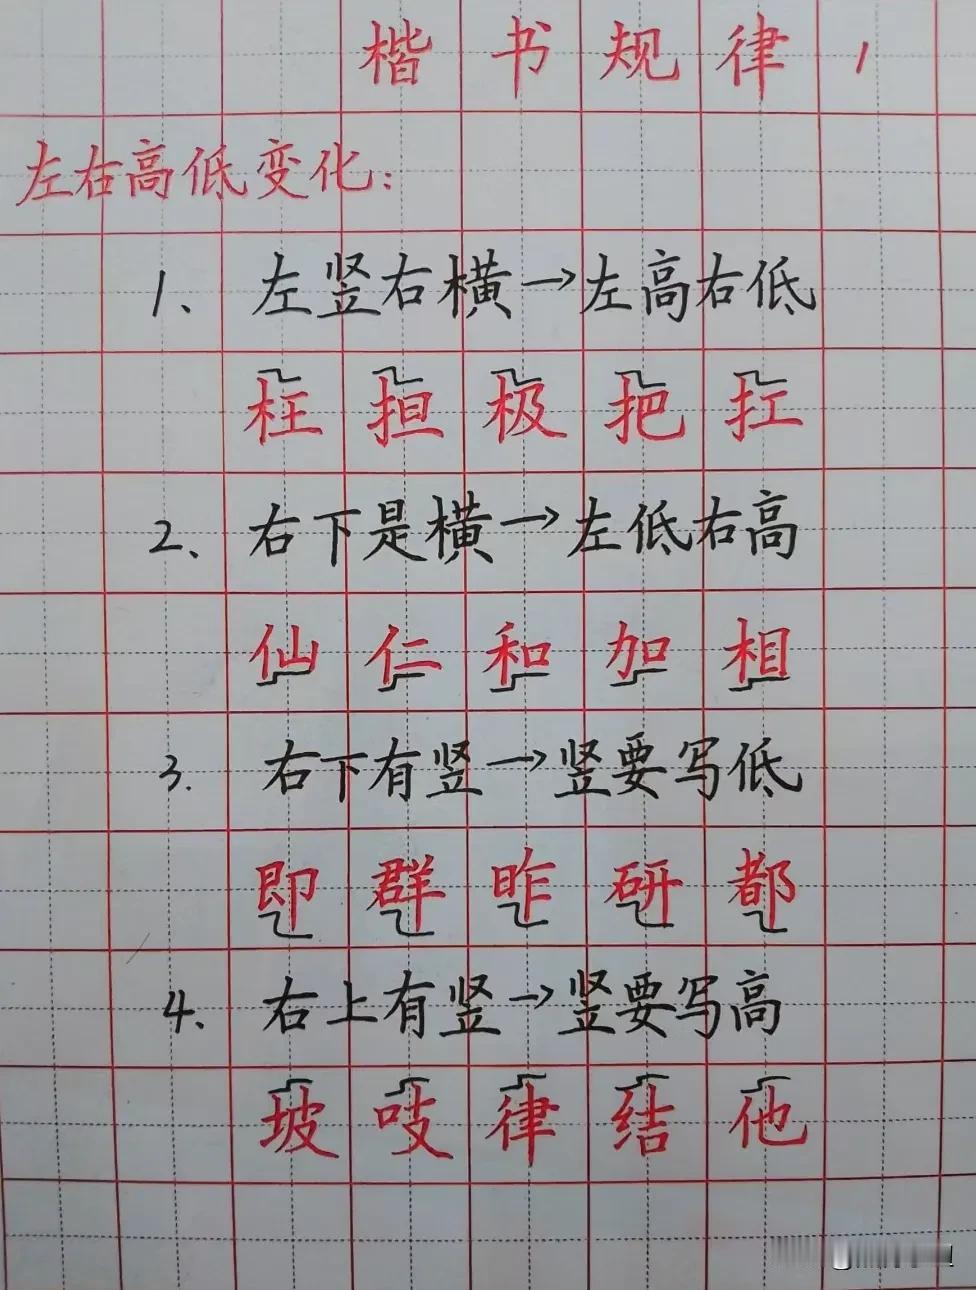 楷书规律1
左右高低变化:
1、左竖右横→左高右低
枉担极把扛
2、右下是横→左低右高
仙仁和加相
3.右下有竖→竖要写低
即群昨研都
4.右上有竖→竖要写高
坡吱律结他